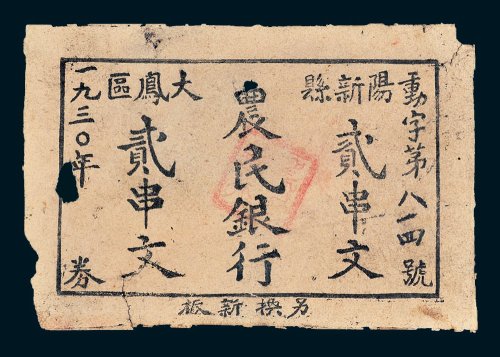 動字第八一四號
陽新縣
貳串文
農民銀行
大鳳區
貳串文
一九三〇年 券
另換新版